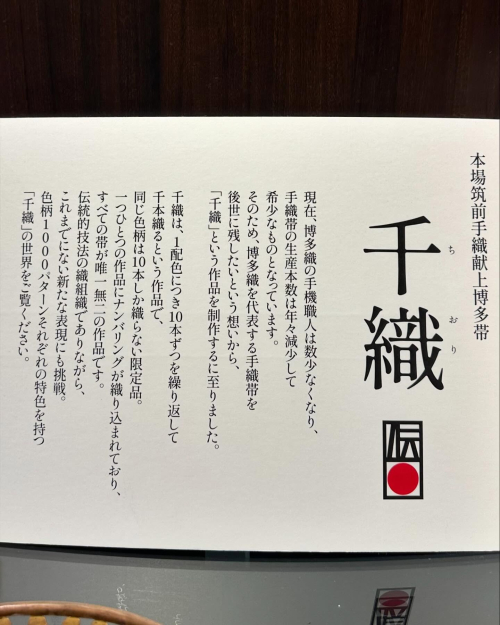 本場筑前手織献上博多帯
千織
ちおり
伝
現在、博多織の手機職人は数少なくなり、
手織帯の生産本数は年々減少して
希少なものとなっています。
そのため、博多織を代表する手織帯を
後世に残したいという想いから、
「千織」という作品を制作するに至りました。
千織は、1配色につき10本ずつを繰り返して
千本織るという作品で、
同じ色柄は10本しか織らない限定品。
一つひとつの作品にナンバリングが織り込まれており、
すべての帯が唯一無二の作品です。
伝統的技法の織組織でありながら、
これまでにない新たな表現にも挑戦。
色柄1000パターンそれぞれの特色を持つ
「千織」の世界をご覧ください。